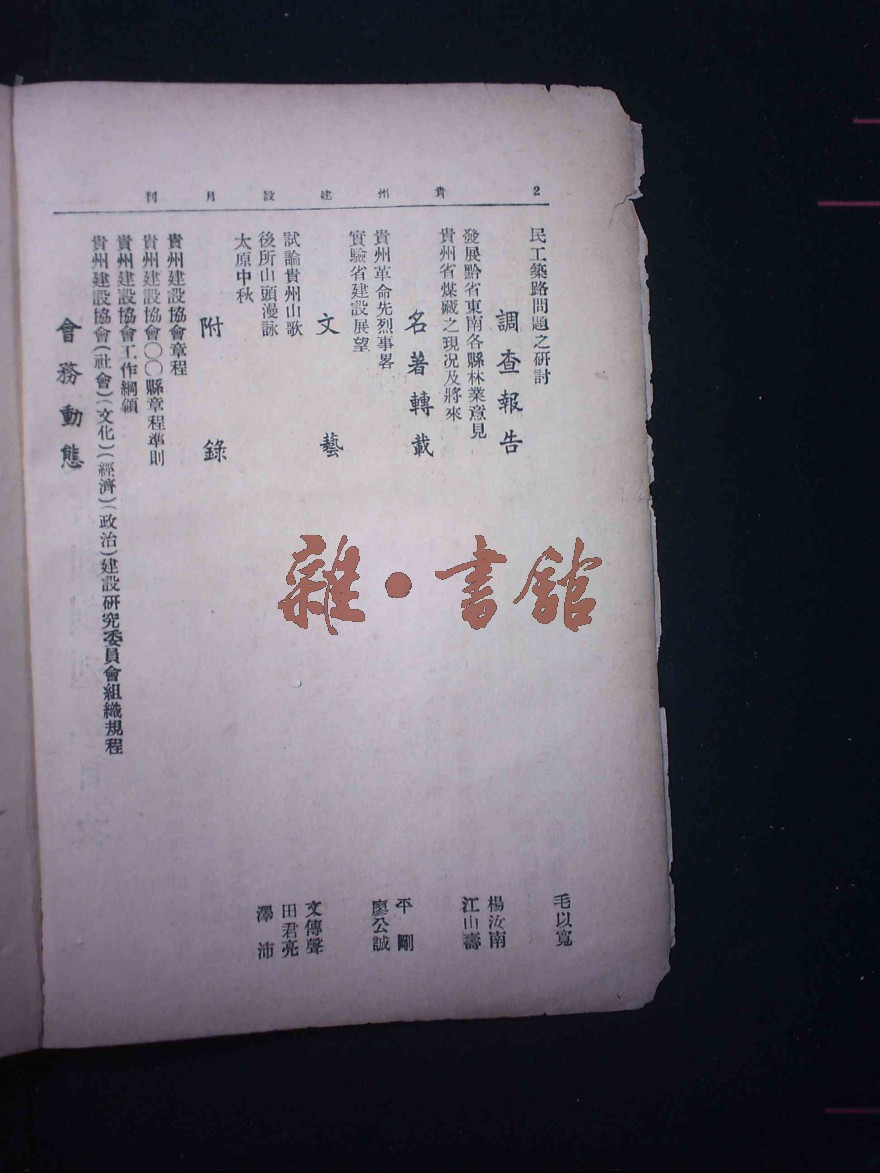 2
貴州建設月刊
民工築路問題之研討
毛以寬
調查報告
發展黔省東南各縣林業意見
楊汝南
貴州省煤藏之現况及將來
江山壽
名著轉載
貴州革命先烈事畧
平剛
實驗省建設展望
廖公誠
文藝
試論貴州山歌
文傳聲
後所山頭漫詠
田君亮
太原中秋
澤沛
附錄
貴州建設協會章程
貴州建設協會〇〇縣章程準則
貴州建設協會工作綱領
貴州建設協會(社會)(文化)(經濟)(政治)建設研究委員會組織規程
會務動態
雜·書館